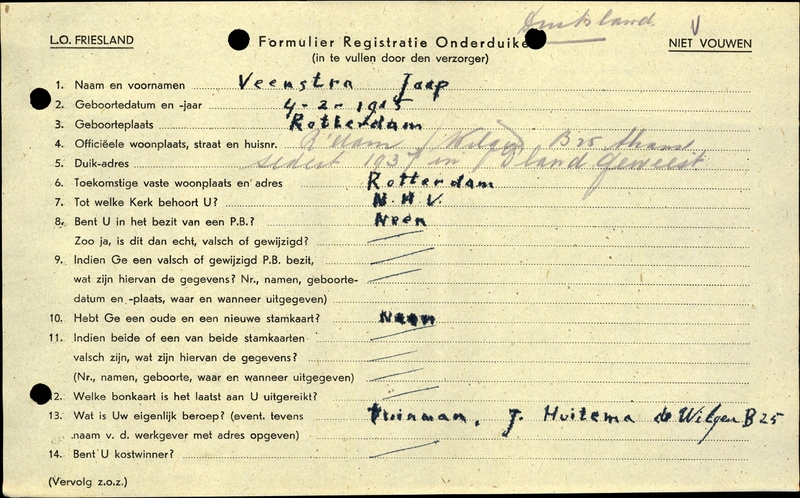 Duitsland V
L.O. FRIESLAND Formulier Registratie Onderduike NIET VOUWEN
(in te vullen door den verzorger)
1. Naam en voornamen Veenstra Jaap
2. Geboortedatum en -jaar 4-2-1915
3. Geboorteplaats Rotterdam
4. Officiëele woonplaats, straat en huisnr. R'dam / Wilgen B25 thans
5. Duik-adres sedert 1937 in D'land geweest
6. Toekomstige vaste woonplaats en adres Rotterdam
7. Tot welke Kerk behoort U? N.H.V.
8. Bent U in het bezit van een P.B.? Neen
Zoo ja, is dit dan echt, valsch of gewijzigd?
9. Indien Ge een valsch of gewijzigd P.B. bezit,
wat zijn hiervan de gegevens? Nr., namen, geboorte-
datum en -plaats, waar en wanneer uitgegeven)
10. Hebt Ge een oude en een nieuwe stamkaart? Neen
11. Indien beide of een van beide stamkaarten
valsch zijn, wat zijn hiervan de gegevens?
(Nr., namen, geboorte, waar en wanneer uitgegeven)
12. Welke bonkaart is het laatst aan U uitgereikt?
13. Wat is Uw eigenlijk beroep? (event. tevens Tuinman, J. Huitema de Wilgen B 25
naam v. d. werkgever met adres opgeven)
14. Bent U kostwinner?
(Vervolg z.o.z.)